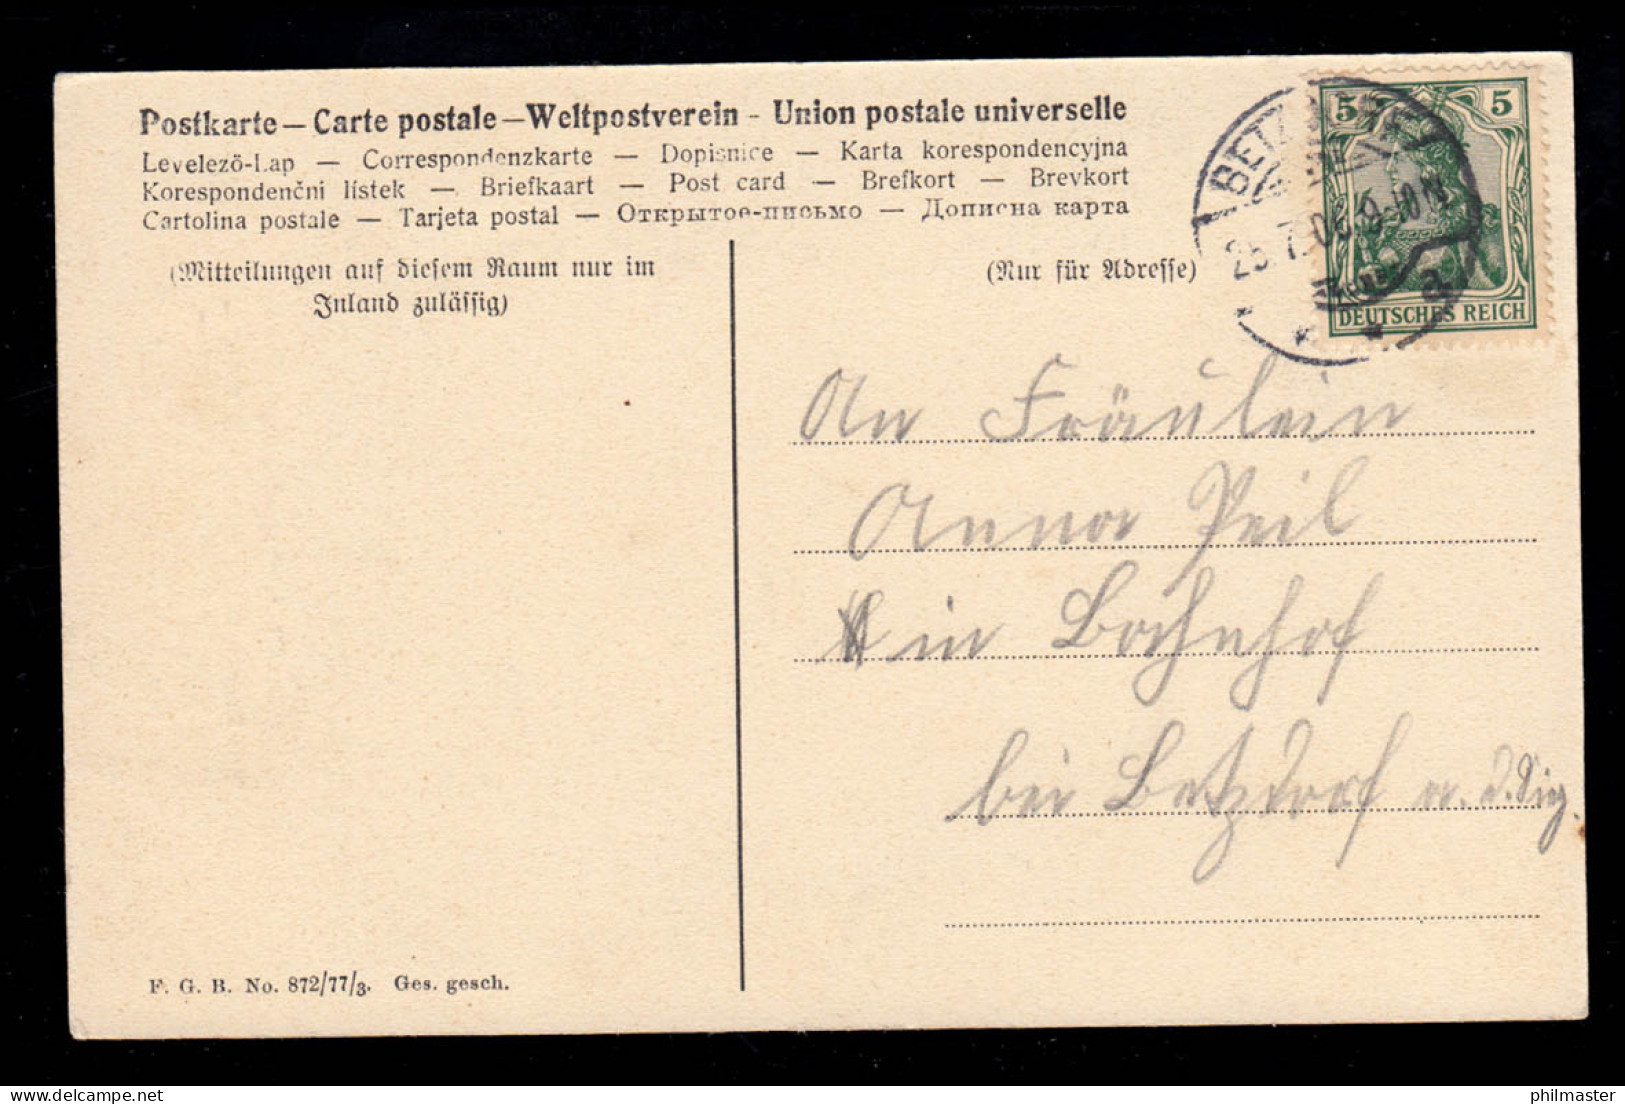 Postkarte — Carte postale — Weltpostverein - Union postale universelle
Levelező-Lap — Correspondenzkarte — Dopisnice — Karta korespondencyjna
Korespondenční lístek — Briefkaart — Post card — Brefkort — Brevkort
Cartolina postale — Tarjeta postal — Открытое-письмо — Дописна карта
(Mitteilungen auf diesem Raum nur im
Inland zulässig)
(Nur für Adresse)
5 5
DEUTSCHES REICH
BETZDORF
25.7.06.9-10N
a
An Fräulein
Anna Peil
in Bahnhof
bei Betzdorf a. d. Sieg.
F. G. B. No. 872/77/3. Ges. gesch.
delcampe.net
philmaster